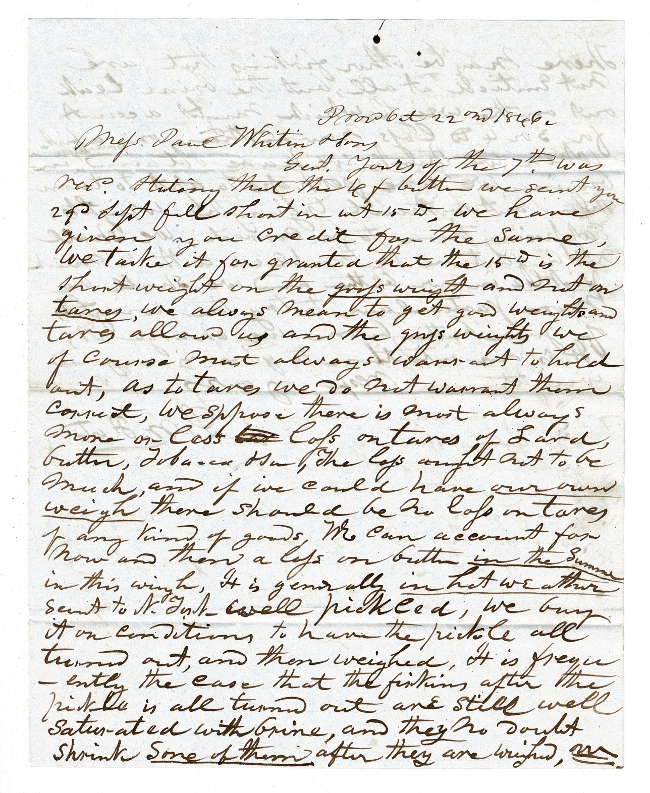 Prov Oct 22nd 1846.
Mess Paul Whitin & Sons
Gent. Yours of the 7th was
recd. stating that the 4 f butter we sent you
29th Sept fell short in wt 15 lb, we have
given you credit for the same,
we take it for granted that the 15 lb is the
short weight on the gross weight and not on
tares, we always mean to get good weights and
tares allowed us and the gross weights we
of course must always warrant to hold
out, as to tares we do not warrant them
correct, we suppose there is most always
more or less loss on tares of Lard,
butter, Tobacco, &c, The loss aught not to be
much, and if we could have our own
weigh there should be no loss on tares
of any kind of goods, We can account for
now and then a loss on butter in the Summe
in this weigh, It is generally in hot weather
sent to N. York well pickled, we buy
it on conditions to have the pickle all
turned out, and then weighed, It is frequ
-ently the case that the firkins after the
pickle is all turned out are still well
saturated with brine, and they no doubt
shrink some of them after they are weighed,